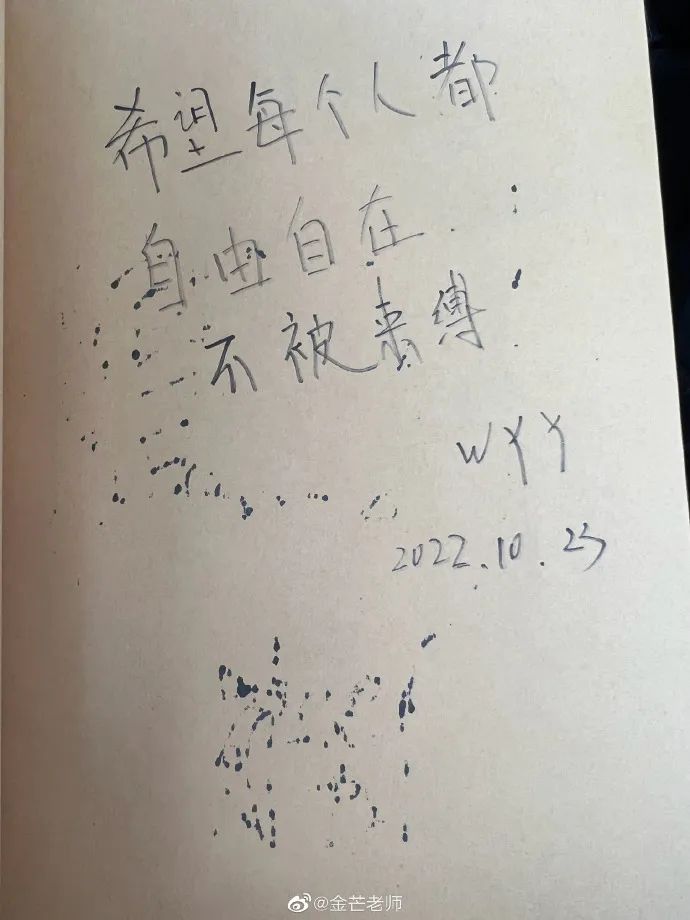 希望每个人都
自由自在.
不被束缚.
WYY
2022.10.23
@金芒老师